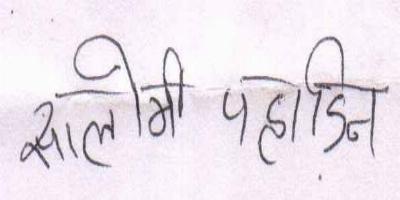 सालोमी पहाडिन